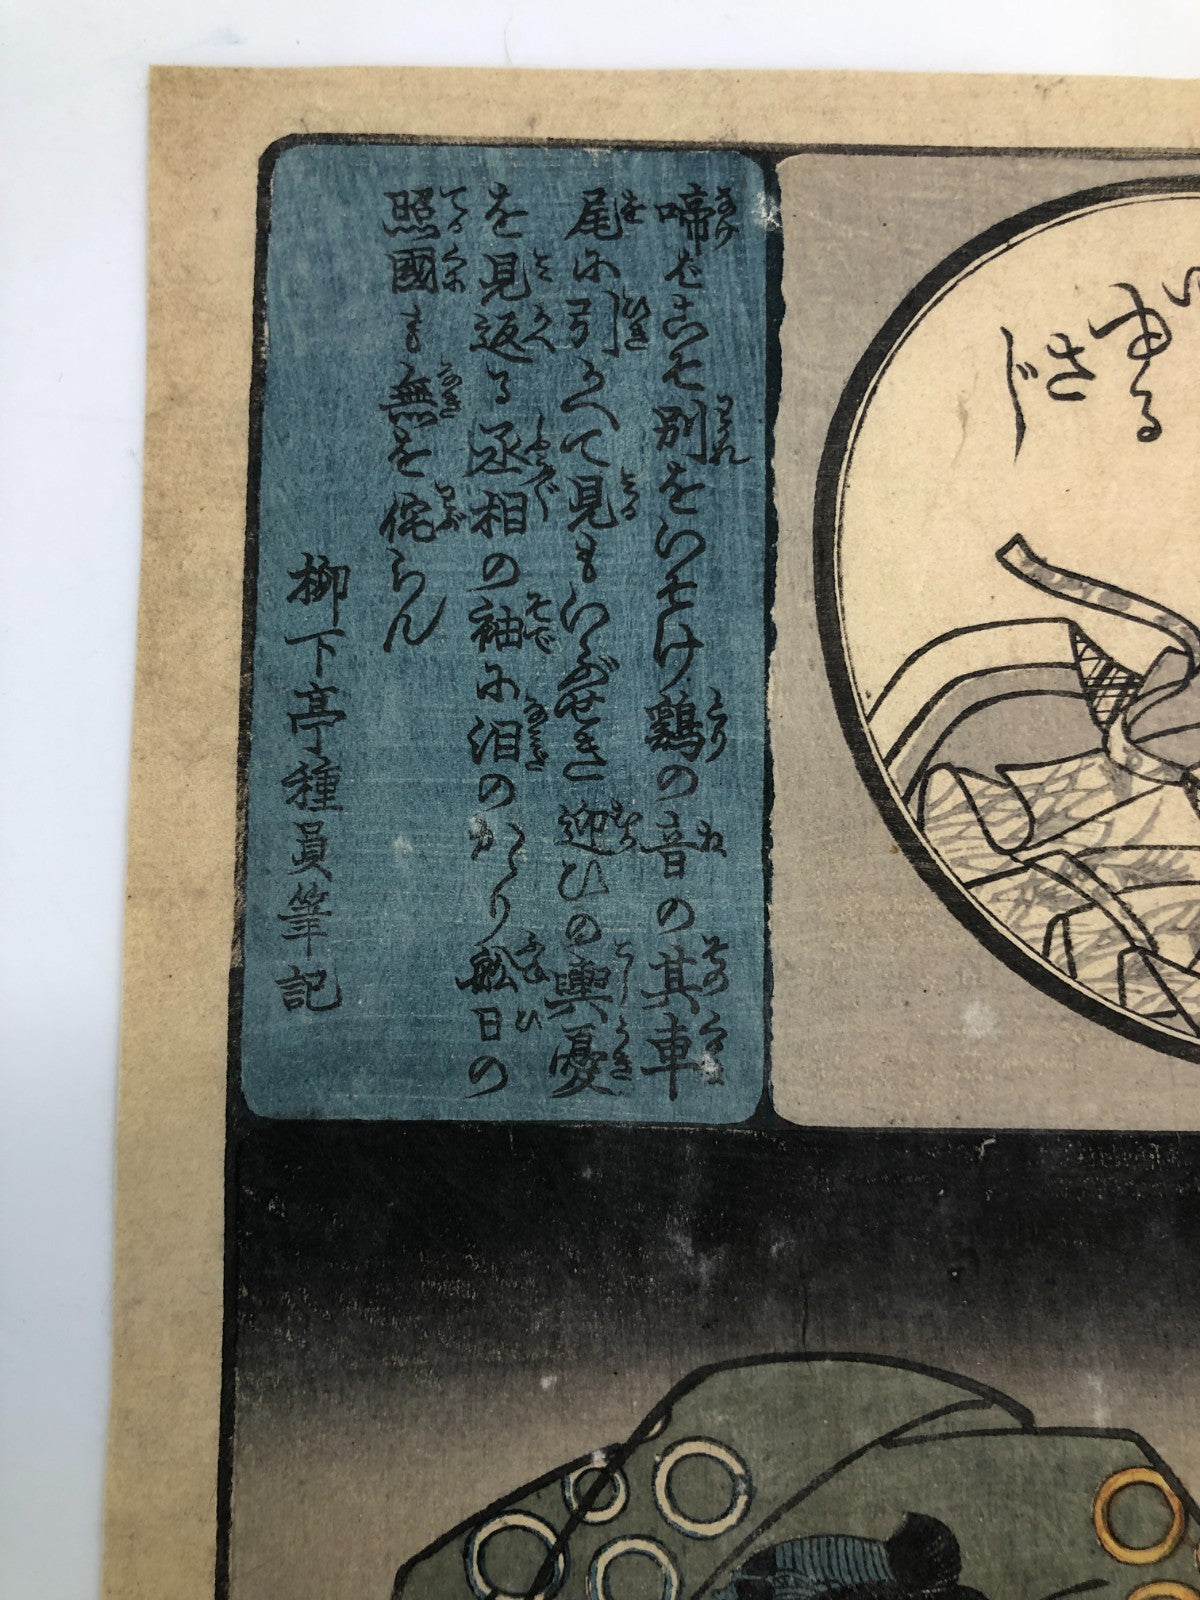 ゆる
さ
じ
啼ばこそ別をいそけ鶏の音の其車
尾に引かへて見もいぶせき迎ひの輿憂
を見返る丞相の袖に泪のかゝり舩日の
照國も無を侘らん
柳下亭種員筆記